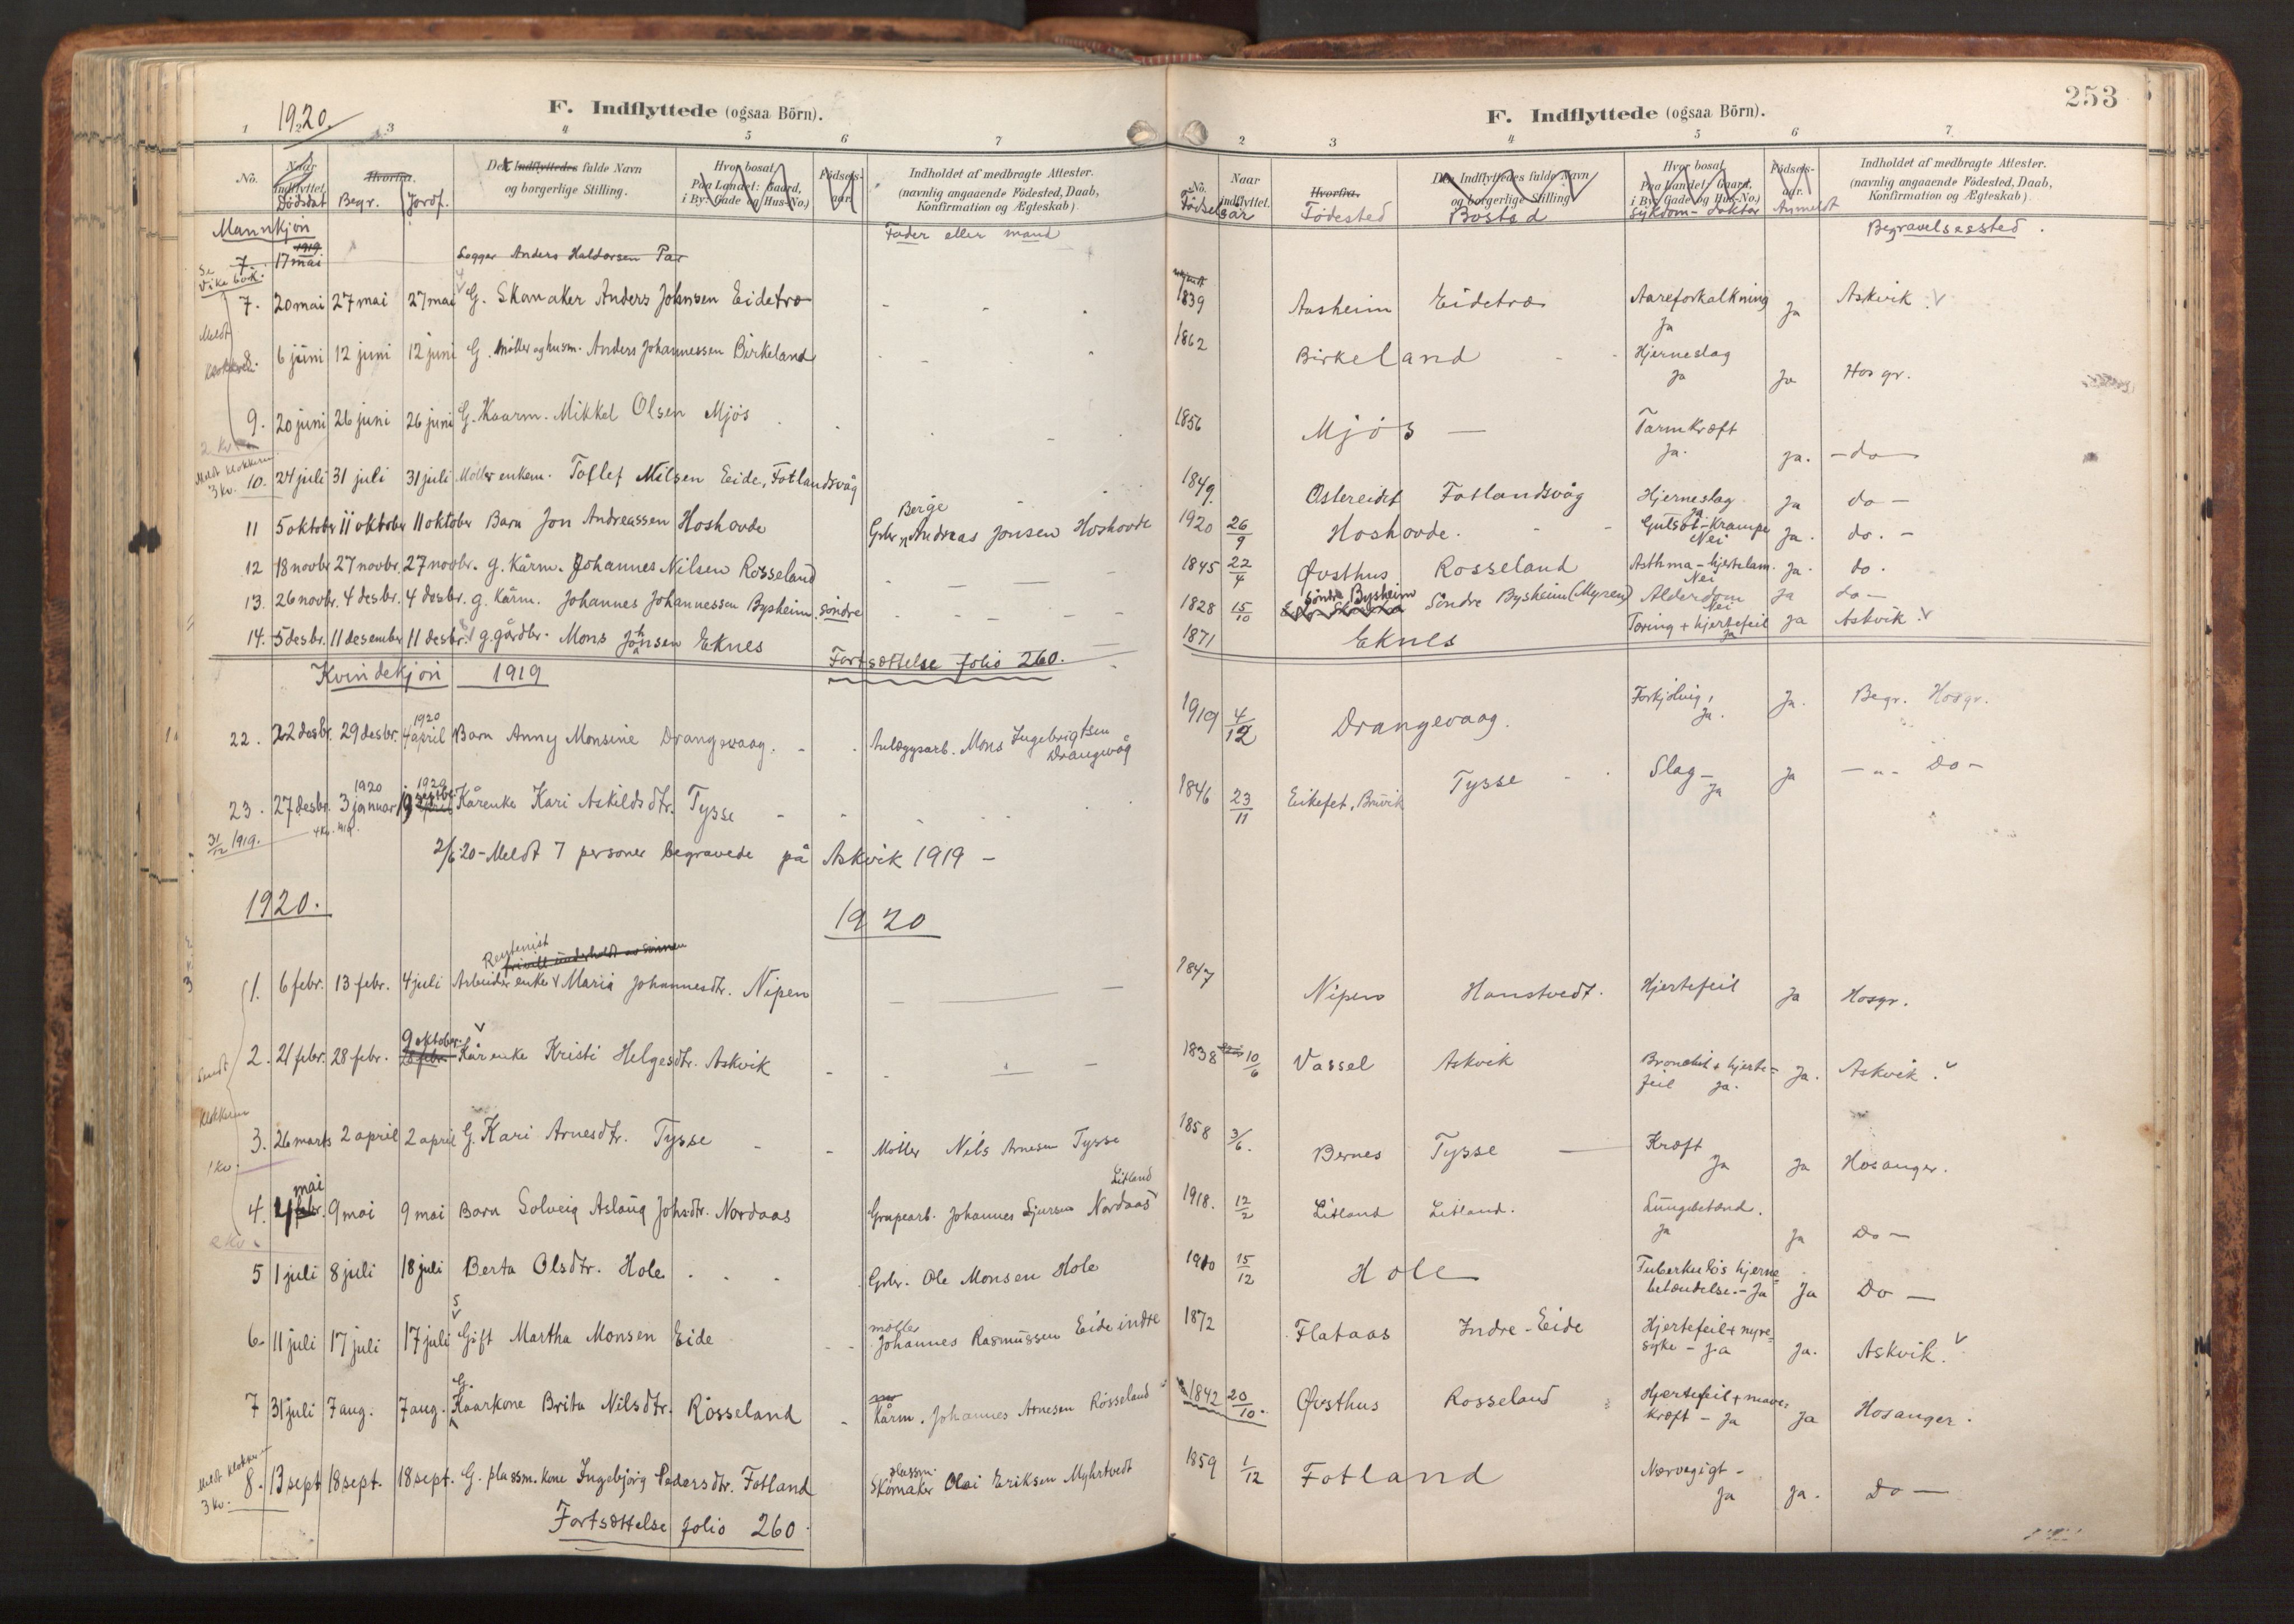 1920.
F. Indflyttede (ogsaa Börn).
1 2 3 4 5 6 7
No. Naar Indflyttet. Hvorfra. Den Indflyttedes fulde Navn og borgerlige Stilling. Hvor bosat Paa Landet: Gaard, i By: Gade og Hus-No.) Födsels-aar. Indholdet af medbragte Attester. (navnlig angaaende Födested, Daab, Konfirmation og Ægteskab)
Dödsdat Begr. Jordf.
Mannkjön
Fader eller mand
7. 1919 17 mai Logger Anders Haldorsen
Se Vike bok.
7. 20 mai 27 mai 27 mai G. Skomaker Anders Johnsen Eidetræ
Meldt klokker
8. 6 juni 12 juni 12 juni G. Möller og husm. Anders Johannessen Birkeland
9. 20 juni 26 juni 26 juni G. Kaarm. Mikkel Olsen Mjös
2 kv.
Meldt klokkeren 3 kv.
10. 24 juli 31 juli 31 juli Möller enkem. Toflef Nilsen Eide, Fotlandsvåg
11 5 oktober 11 oktober 11 oktober Barn Jon Andreassen Hoshovde Grbr. Andreas Berge Jonsen Hoshovde
12 18 novbr. 27 novbr. 27 novbr. g. Kårm. Johannes Nilsen Rosseland
13. 26 novbr. 4 desbr. 4 desbr. g. Kårm. Johannes Johannessen Bysheim, söndre
14. 5 desbr. 11 desember 11 desbr. g. gårdbr. Mons Johnsen Eknes
Fortsættelse folio 260.
Kvindekjön 1919
22. 22 desbr. 29 desbr. 1920 4 april Barn Anny Monsine Drangevaag. Anlægsarb. Mons Ingebrigtsen Drangevåg
23. 27 desbr. 1920 3 januar 1920 Kårenke Kari Askildsdtr. Tysse
31/12 1919.
2/6 20 - Meldt 7 personer begravede på Askvik 1919 -
1920. 1920
Rentenist
1. 6 febr. 13 febr. 4 juli Arbeider enke Maria Johannesdtr. Nipen
2. 21 febr. 28 febr. 9 oktober 28 febr. Kårenke Kristi Helgesdtr. Askvik
Sendt Klokkeren
3. 26 marts 2 april 2 april G. Kari Arnesdtr. Tysse Möller Nils Arnesen Tysse
1 kv.
4. 2 mai 9 mai 9 mai Barn Solveig Aslaug Johsdtr. Nordaas Grupearb. Johannes Sjursen Nordaas Litland
2 kv.
5 1 juli 8 juli 18 juli Berta Olsdtr. Hole Grbr. Ole Monsen Hole
6. 11 juli 17 juli 17 juli Gift Martha Monsen Eide möller Johannes Rasmussen Eide indre
7 31 juli 7 aug. 7 aug. G. Kaarkone Brita Nilsdtr. Rosseland Kårm. Johannes Arnesen Rosseland
Meldt klokker 3 kv.
8. 13 sept 18 sept. 18 sept. G. plassm. kone Ingebjörg Pedersdtr. Fotland plassm. Skomaker Olai Eriksen Myhrtvedt
Fortsættelse folio 260.
253
F. Indflyttede (ogsaa Börn).
2 3 4 5 6 7.
No. Naar indflyttet. Hvorfra. Den Indflyttedes fulde Navn og borgerlige Stilling Hvor bosat Paa Landet: Gaard, i By: Gade og Hus-No.) Födsels-aar. Indholdet af medbragte Attester. (navnlig angaaende Födested, Daab, Konfirmation og Ægteskab)
Födselsår Födested Bosted Sykdom - doktor Anmeldt Begravelsessted.
1839 Aasheim Eidetræ Aareforkalkning Ja Ja Askvik
1862 Birkeland Hjerneslag Ja Ja Hosgr.
1856 Mjös — Tarmkræft Ja. Ja. - do -
1849. Ostereidet Fotlandsvåg Hjerneslag Ja Ja do -
1920 26/9 Hoshovde. Gulsot - Krampe Nei Ja. do. -
1845 22/4 Øvsthus Rosseland Asthma - hjertelam. Nei Ja. do.
1828 15/10 Söndre Bysheim Söndre Bysheim (Myren) Alderdom Nei Ja do -
1871 Eknes Tæring + hjertefeil Ja Ja Askvik.
1919 4/12 Drangevaag. Forkjöling, Ja. Ja. Begr. Hosgr.
1846 23/11 Eikefet, Bruvik Tysse Slag - Ja Ja - " - Do -
1847 Nipen Hanstvedt. Hjertefeil Ja Hosgr.
1838 10/6 Vassel Askvik Bronchit + hjertefeil Ja. Ja. Askvik.
1858 3/6. Bernes Tysse Kræft Ja Ja Hosanger.
1918. 12/2 Litland Litland. Lungebetænd. Ja Ja Do -
1910 15/12 Hole Tuberkulös hjernebetændelse. - Ja Ja Do -
1872 Flataas Indre-Eide Hjertefeil + nyresyke - ja Ja. Askvik.
1842 20/10. Øvsthus Rosseland Hjertefeil + mavekræft - Ja Ja Hosanger.
1859 1/12 Fotland Nervegigt - Ja Ja. Do -